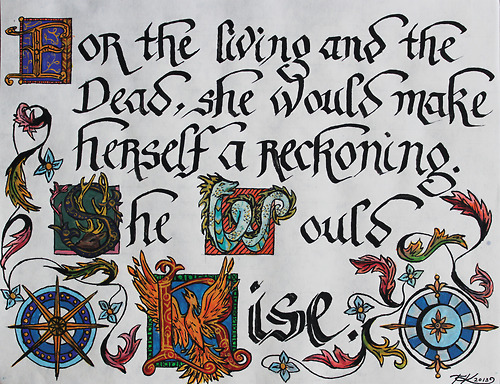 For the living and the
Dead, she would make
herself a reckoning.
She Would
Rise.